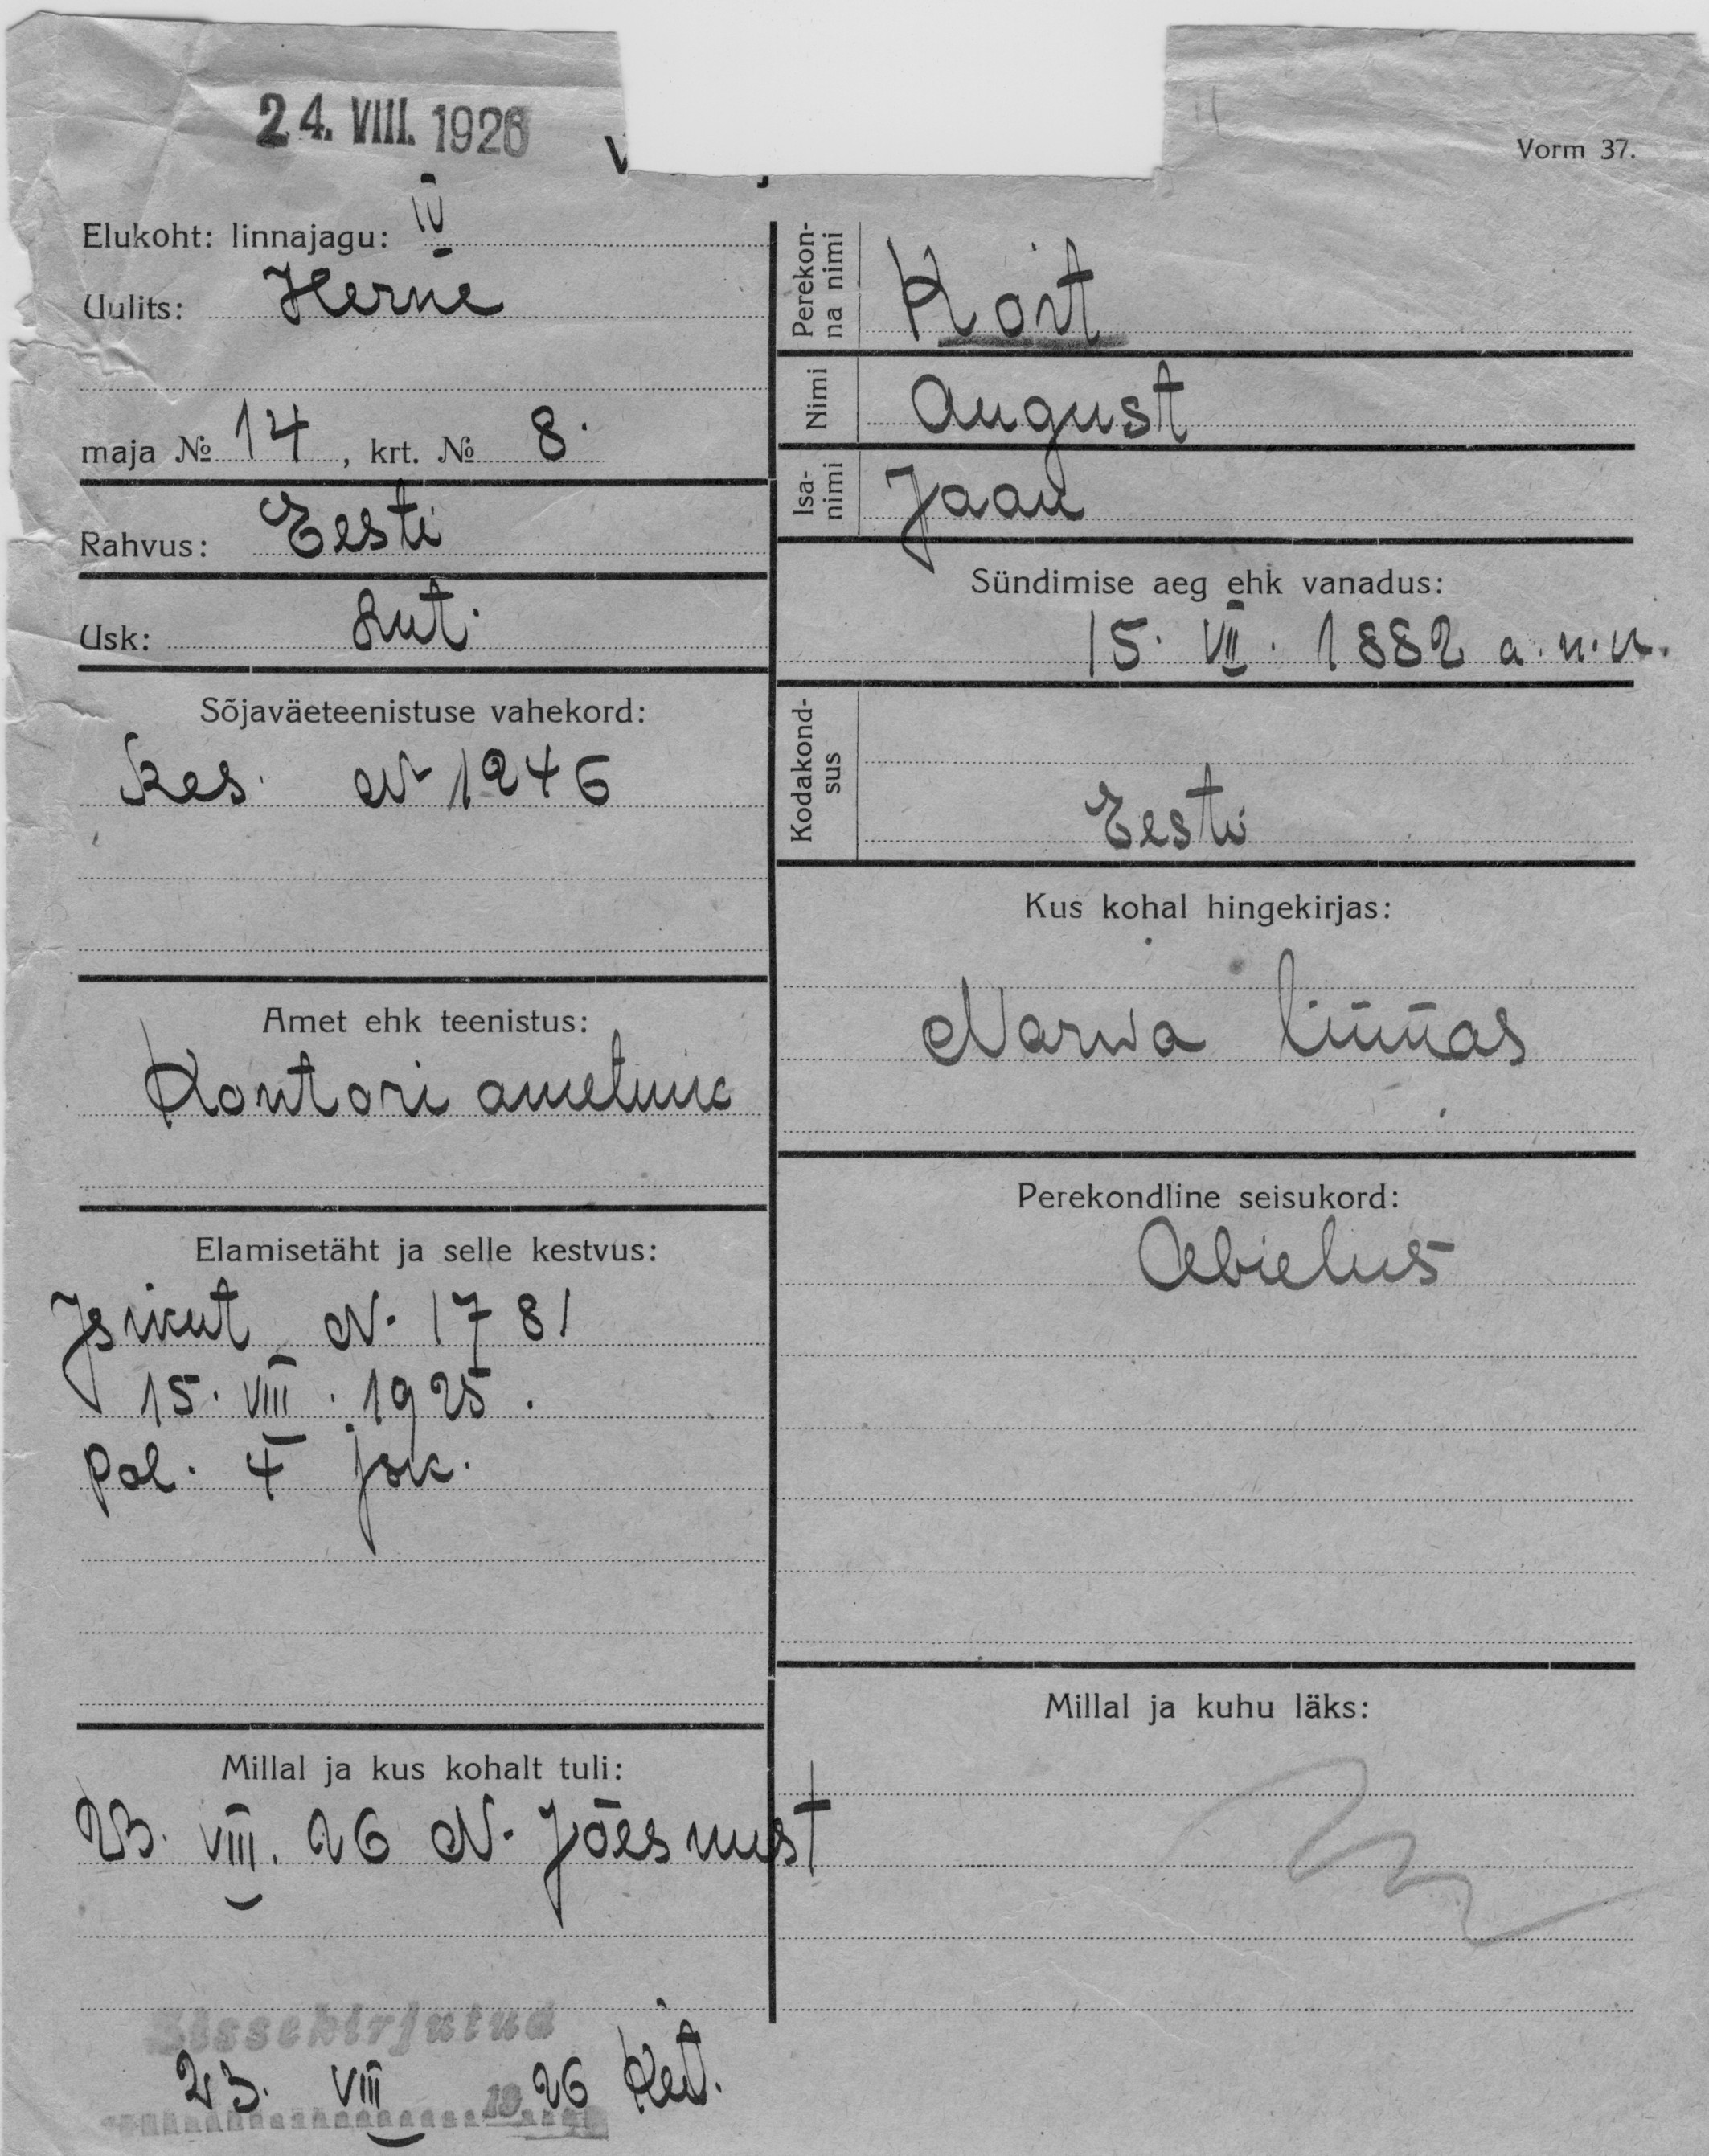 24. VIII. 1926
Vorm 37.
Elukoht: linnajagu: IV
Uulits: Herne
maja № 14, krt. № 8.
Rahvus: Eesti
Usk: Lut.
Sõjaväeteenistuse vahekord:
Res. N 1246
Amet ehk teenistus:
Kontori ametnik
Elamisetäht ja selle kestvus:
Isikut N. 1781
15. VIII. 1925.
Pol. 4 jsk.
Millal ja kus kohalt tuli:
23. VIII. 26 N. Jõesuust
Sissekirjutud
23. VIII 1926
Perekon-
na nimi
Koit
Nimi
August
Isa-
nimi
Jaan
Sündimise aeg ehk vanadus:
15. VII. 1882 a.
Kodakond-
sus
Eesti
Kus kohal hingekirjas:
Narwa linnas
Perekondline seisukord:
Abielus
Millal ja kuhu läks: